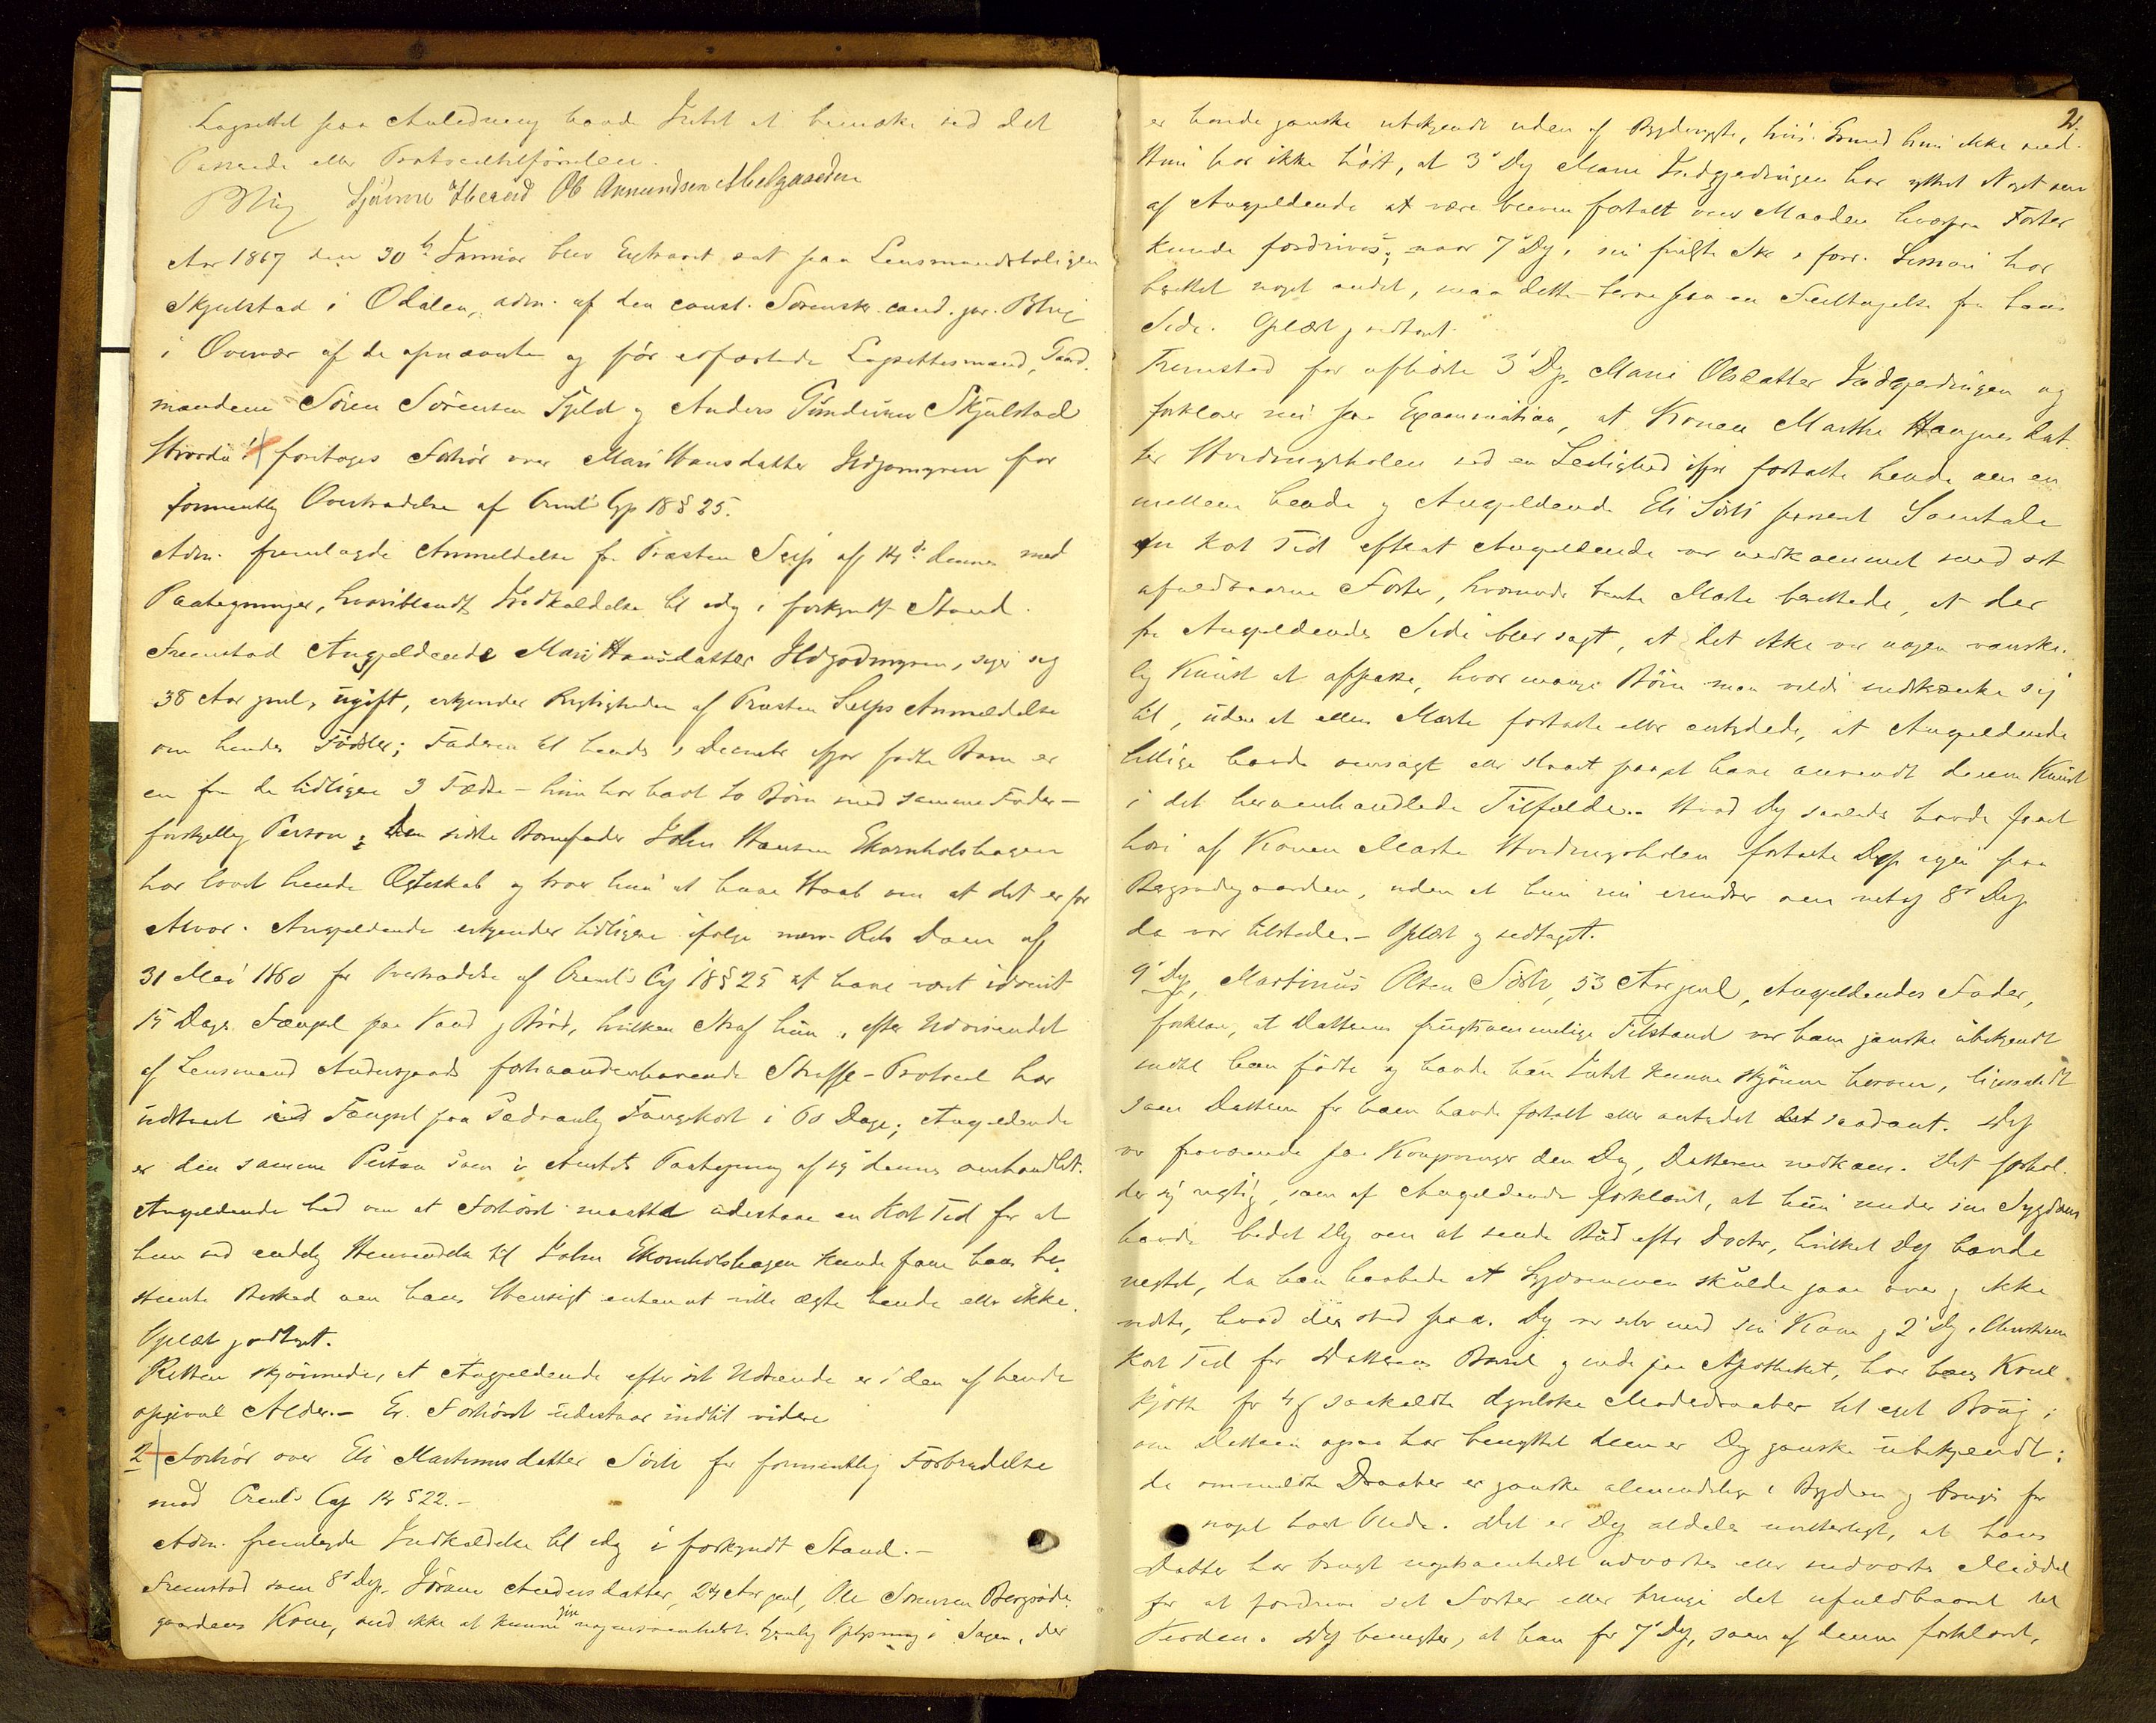 Lagrettet paa Anledning havde Intet at bemærke ved det
Passerede eller Protocoltilførselen.
Ole Amundsen Melgaarden
Aar 1867 den 30te Januar blev Extraret sat paa Lensmandsboligen
Skjulstad i Odalen, adm. af den const. Sorenskr. cand. jur.
i Overvær af de opnævnte og før edfæstede Lagrettesmænd, Gaard-
mændene Sören Sörensen og Anders Gundersen Skjulstad
Hvorda foretoges Forhör over Mari Hansdatter for
formentlig Overtrædelse af Criml's Cap 18 § 25.
Adm. fremlagde Anmeldelse fra Præsten Selp af 14de dennes med
Paategninger, hvoriblandt Indkaldelse til idag i forkyndt Stand.
Fremstod Angjeldende Mari Hansdatter, siger sig
38 Aar gml, ugift, erkjender Rigtigheden af Præsten Selps Anmeldelse
om hendes Födsler; Faderen til hendes i December ifjor födte Barn er
en fra de tidligere 3 Fædre - hun har havt to Börn med samme Fader -
forskjellig Person; Den sidste Barnefader John Hansen Ekornholshagen
har lovet hende Ægteskab og troer hun at have Haab om at det er for
Alvor. Angjeldende erkjender tidligere ifölge nærv. Rets Dom af
31 Mai 1860 for Overtrædelse af Criml's Cap 18 § 25 at have været idömt
15 Dages Fængsel paa Vand og Bröd, hvilken Straf hun, efter Udvisendet
af Lensmand Andersgaards forhaandenværende Straffe-Protocol har
udstaaet med Fængsel paa sædvanlig Fangekost i 60 Dage; Angjeldende
er den samme Person som i Amtets Paategning af 19de dennes omhandlet.
Angjeldende bad om at Forhöret maatte udestaae en kort Tid for at
hun ved endelig Henvendelse til John Ekornholshagen kunde faae hans be-
stemte Besked om hans Hensigt enten at ville ægte hende eller ikke.
Oplæst vedtaget.
Retten skjönnede, at Angjeldende efter sit Udseende er i den af hende
opgivne Alder. - Ex. Forhöret udestaar indtil videre
2 Forhör over Eli Martinusdatter Sörli for formentlig Forbrydelse
mod Criml's Cap 14 § 22. -
Adm. fremlagde Indkaldelse til idag i forkyndt Stand. -
Fremstod som 8de Dep. Jörane Andersdatter, 24 Aar gml, Ole Sörensen Bergsröds-
gaardens Kone, ved ikke at kunne give nogensomhelst Oplysning i Sagen, der
2.
er hende ganske ubekjendt uden af Bygderygte, hvis Grund hun ikke ved.
Hun har ikke hört, at 3die Dep Marie har yttret Noget om
af Angjeldende at være bleven fortalt om Maaden hvorpaa Foster
kunde fordrives; naar 7de Dep. i sin Skr. i forr. Session har
berettet noget andet, maa dette bero paa en Feiltagelse fra hans
Side. Oplæst vedtaget.
Fremstod før afhörte 3die Dep. Marie Olsdatter og
forklarer nu paa Examination, at Konen Marthe Haagensdat-
ter Hvedingsholen ved en Leilighed ifjor fortalte hende om en
mellem hende og Angjeldende Eli Sörli passeret Samtale
en kort Tid efterat Angjeldende var nedkommet med sit
ufuldbaarne Foster, hvorunder bemte Marte berettede, at der
fra Angjeldendes Side blev sagt, at det ikke var nogen vanske-
lig Kunst at afpasse, hvor mange Börn man vilde indskrænke sig
til, uden at ellers Marte fortalte eller antydede, at Angjeldende
tillige havde omsagt eller slaaet paa at have anvendt denne Kunst
i det heromhandlede Tilfælde. - Hvad Dep saaledes havde faaet
höre af Konen Marte Hvedingsholen fortalte Dep igjen paa
Bergsrødsgaarden, uden at hun nu erindrer om netop 8de Dep
da var tilstede. - Oplæst og vedtaget.
9de Dep, Martinus Olsen Sörli, 53 Aar gml, Angjeldendes Fader,
forklarer, at Datterens frugtsommelige Tilstand var ham ganske ubekjendt
indtil hun födte og havde han Intet kunne skjönne herom, ligesaalidt
som Datteren for ham havde fortalt eller antydet det saadant. Dep
var fraværende paa Kongsvinger den Dag, Datteren nedkom. Det forhol-
der sig rigtig, som af Angjeldende forklaret, at hun under sin Sygdom
havde bedet Dep om at sende Bud efter Doctor, hvilket Dep havde
negtet, da han haabede at Sygdommen skulde gaae over og ikke
vidste, hvad der stod paa. Dep var selv med sin Kone og 2den Dep. Christian
kort Tid før Datterens Barsel og inde paa Apotheket, hvor hans Kone
kjöbte for 4 s saakaldte Moderdraaber til eget Brug;
om Datteren ogsaa har benyttet dem er Dep ganske ubekjendt;
de ommeldte Draaber er ganske almindelige i Bygden og bruges for
noget hvert Onde. Det er Dep aldeles uvitterligt, at hans
Datter har brugt nogetsomhelst udvortes eller indvortes Middel
for at fordrive sit Foster eller bringe det ufuldbaaret til
Verden. Dep benegter, at han for 7de Dep, som af denne forklaret,